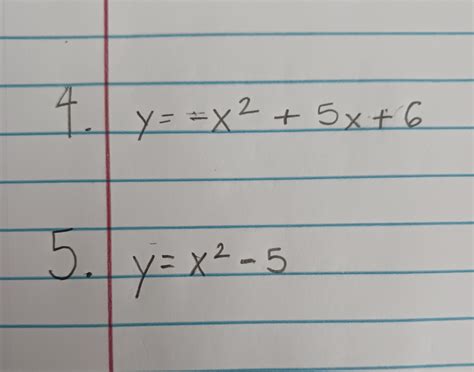 4. y = -x² + 5x + 6
5. y = x² - 5